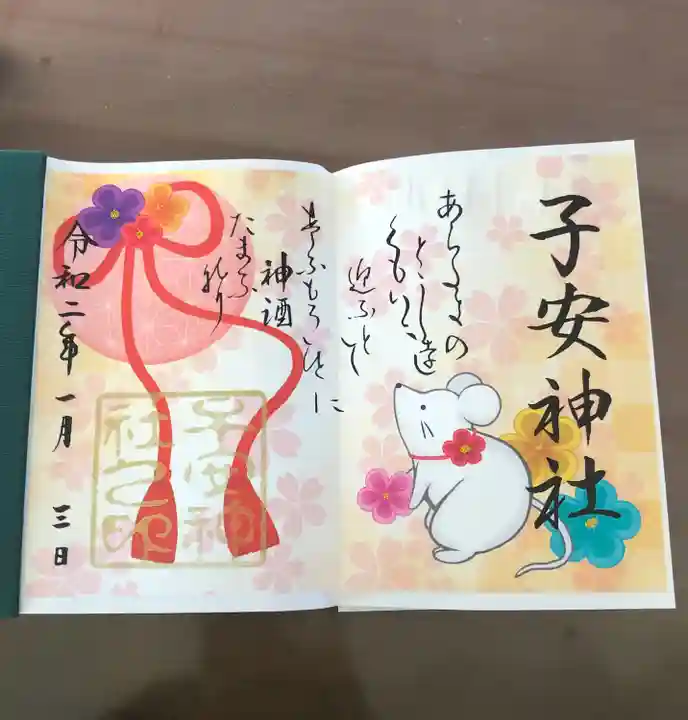 子安神社
あらたまの
とし遠
くもいに
迎ふと
に
神酒
たまふ
なり
令和二年一月三日
子安神
社之印